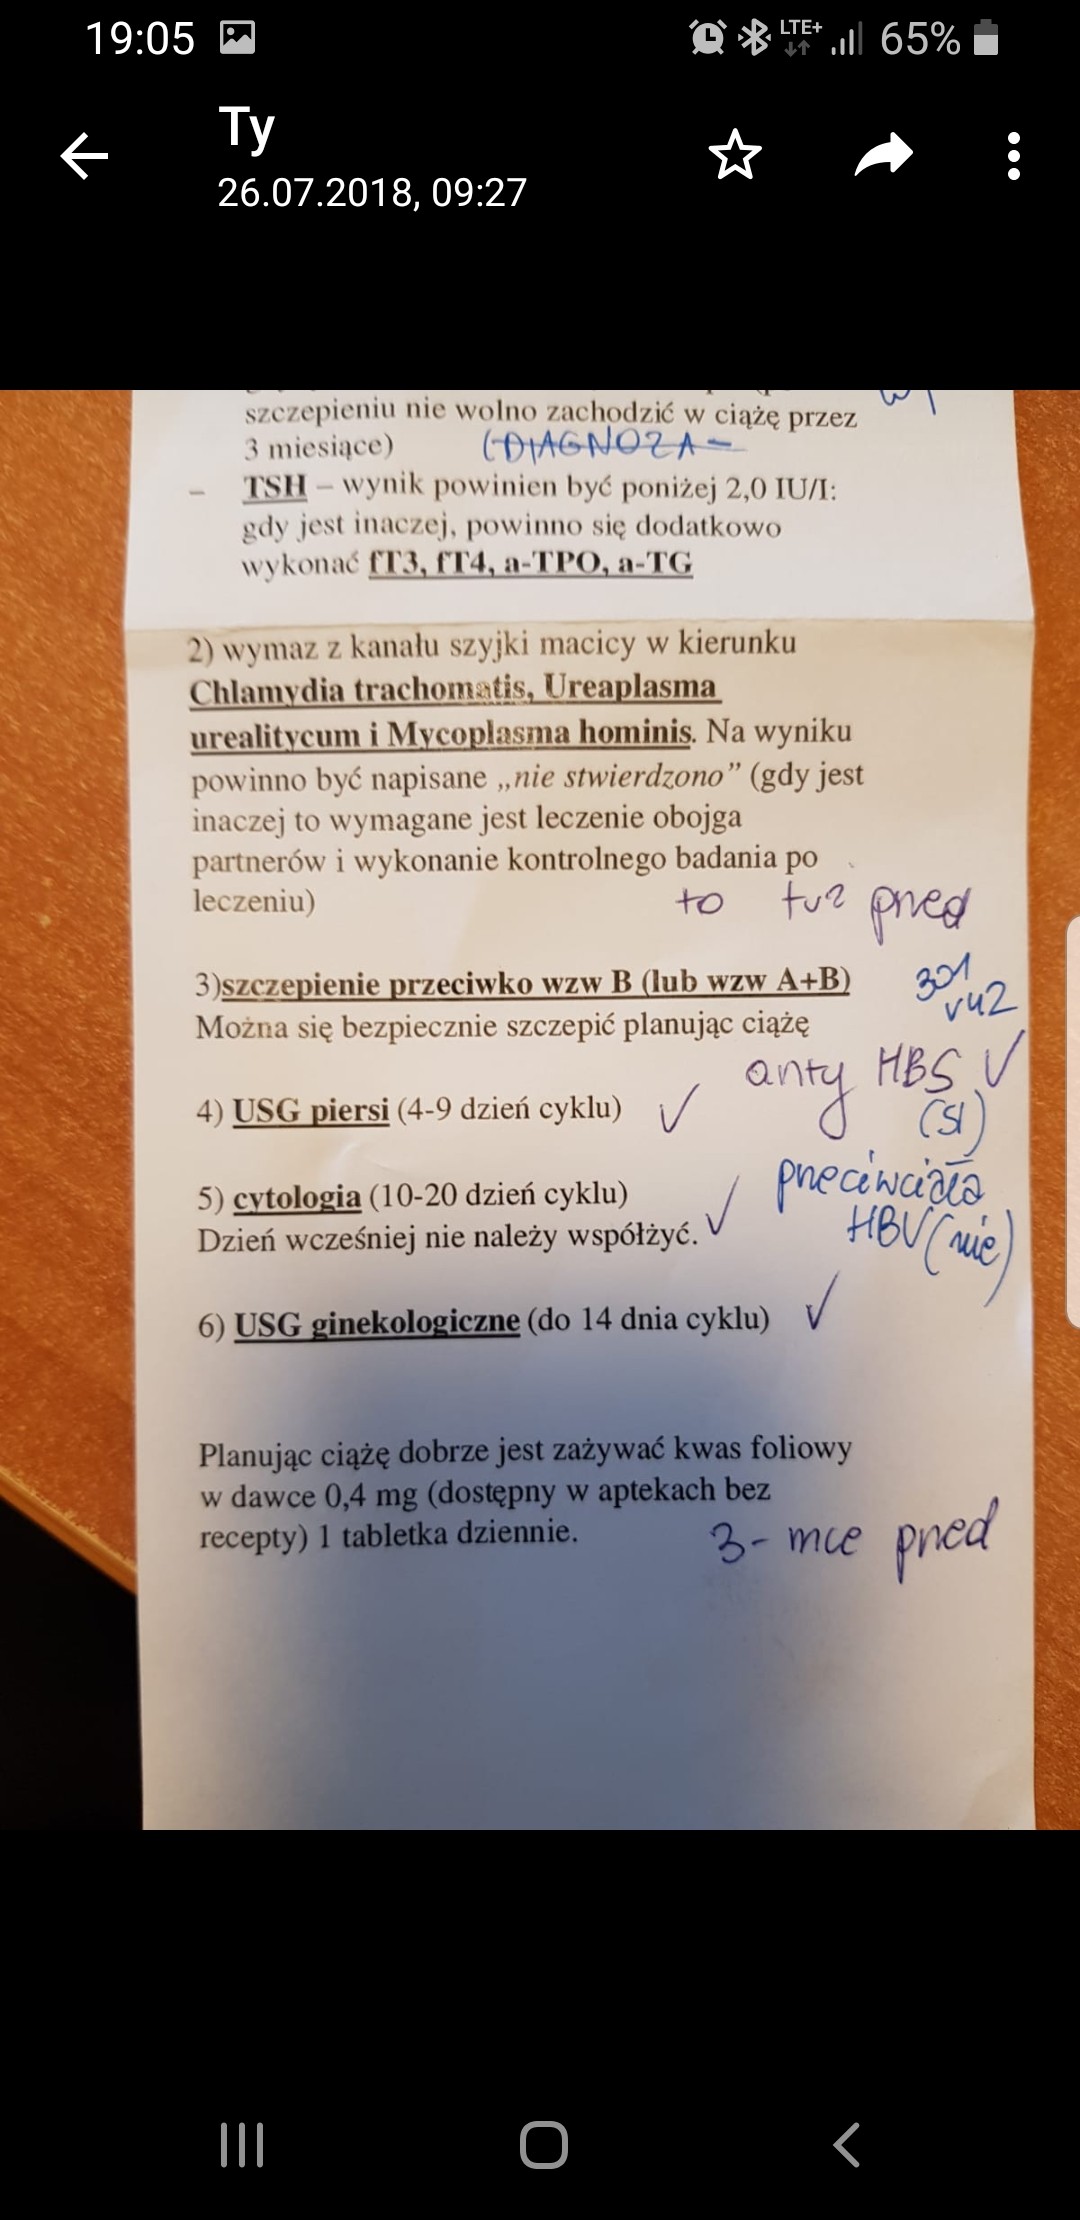 19:05 LTE+ 65%
Ty
26.07.2018, 09:27
szczepieniu nie wolno zachodzić w ciążę przez
3 miesiące) (DIAGNOZA -
– TSH – wynik powinien być poniżej 2,0 IU/I:
gdy jest inaczej, powinno się dodatkowo
wykonać fT3, fT4, a-TPO, a-TG
2) wymaz z kanału szyjki macicy w kierunku
Chlamydia trachomatis, Ureaplasma
urealitycum i Mycoplasma hominis. Na wyniku
powinno być napisane „nie stwierdzono” (gdy jest
inaczej to wymagane jest leczenie obojga
partnerów i wykonanie kontrolnego badania po
leczeniu) to tuż przed
3)szczepienie przeciwko wzw B (lub wzw A+B)
Można się bezpiecznie szczepić planując ciążę
anty HBS √
4) USG piersi (4-9 dzień cyklu) √
5) cytologia (10-20 dzień cyklu) √ przeciwciała
Dzień wcześniej nie należy współżyć. HBV (nie)
6) USG ginekologiczne (do 14 dnia cyklu) √
Planując ciążę dobrze jest zażywać kwas foliowy
w dawce 0,4 mg (dostępny w aptekach bez
recepty) 1 tabletka dziennie. 3- mce przed